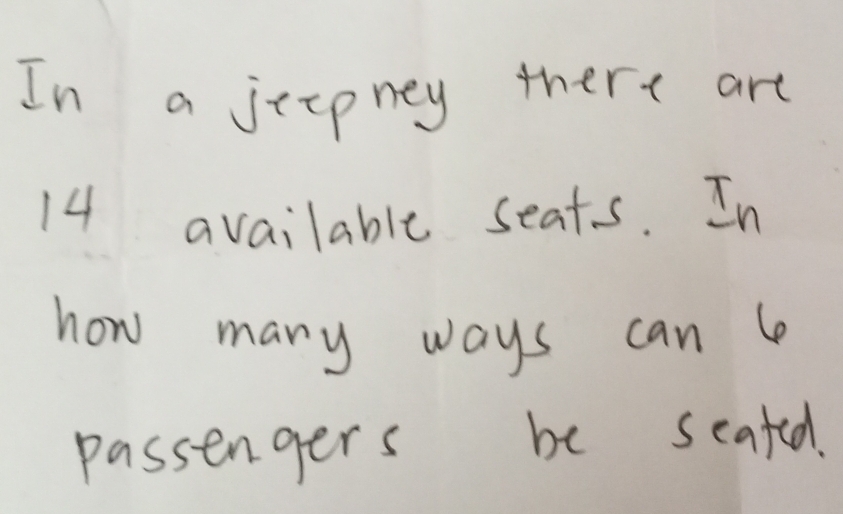 In a jeepney there are
14 available seats. In
how many ways can 6
passengers be seated.